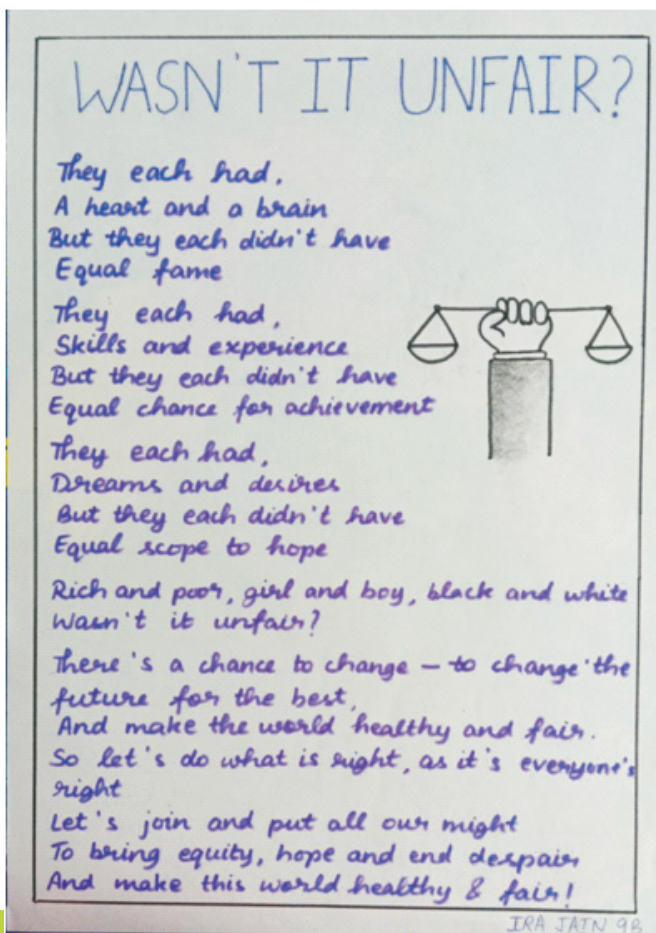 WASN'T IT UNFAIR?
They each had,
A heart and a brain
But they each didn't have
Equal fame
They each had,
Skills and experience
But they each didn't have
Equal chance for achievement
They each had,
Dreams and desires
But they each didn't have
Equal scope to hope
Rich and poor, girl and boy, black and white
Wasn't it unfair?
There's a chance to change – to change the
future for the best,
And make the world healthy and fair.
So let's do what is right, as it's everyone's
right
Let's join and put all our might
To bring equity, hope and end despair
And make this world healthy & fair!
IRA JAIN 9B